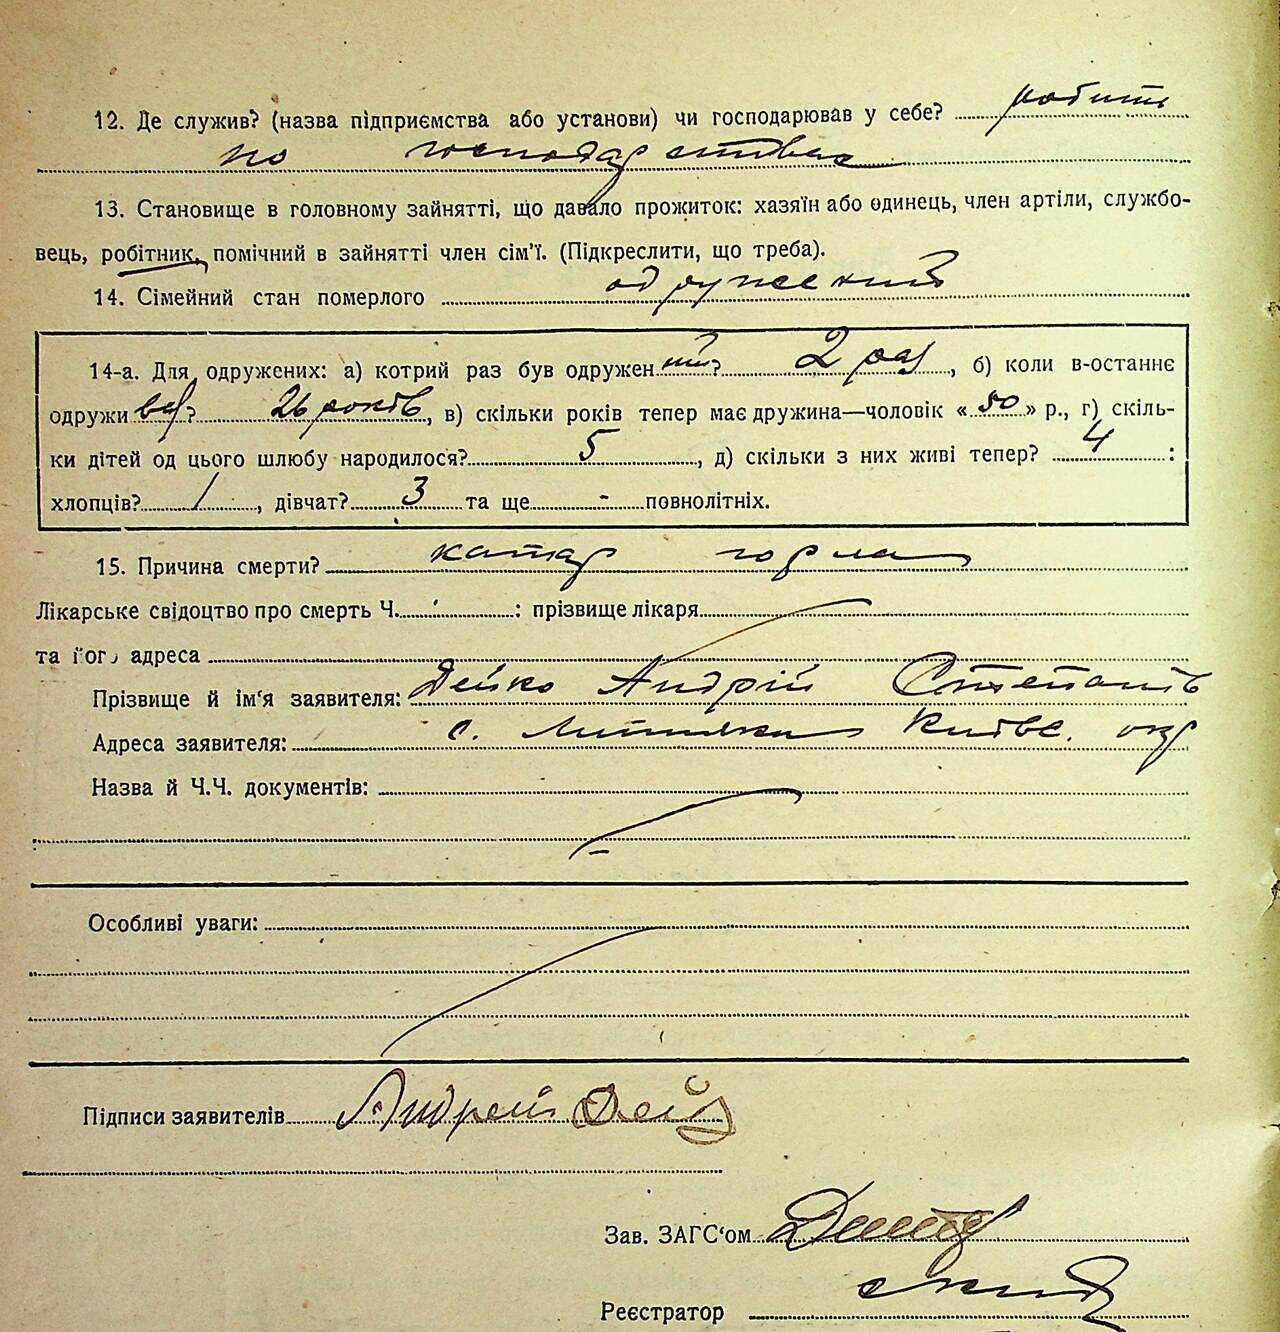 12. Де служив? (назва підприємства або установи) чи господарював у себе? робить
по господарствах
13. Становище в головному зайнятті, що давало прожиток: хазяїн або одинець, член артіли, службо-
вець, робітник, помічний в зайнятті член сім'ї. (Підкреслити, що треба).
14. Сімейний стан померлого одружений
14-а. Для одружених: а) котрий раз був одружений? 2 раз, б) коли в-останнє
одруживсь? 26 років, в) скільки років тепер має дружина—чоловік «50» р., г) скіль-
ки дітей од цього шлюбу народилося? 5, д) скільки з них живі тепер? 4:
хлопців? 1, дівчат? 3 та ще - повнолітніх.
15. Причина смерти? катар горла
Лікарське свідоцтво про смерть Ч. : прізвище лікаря
та його адреса
Прізвище й ім'я заявителя: Дейко Андрій Степанів
Адреса заявителя: с. Київс. окр
Назва й Ч.Ч. документів:
Особливі уваги:
Підписи заявителів Андрей Дей
Зав. ЗАГС'ом
Реєстратор